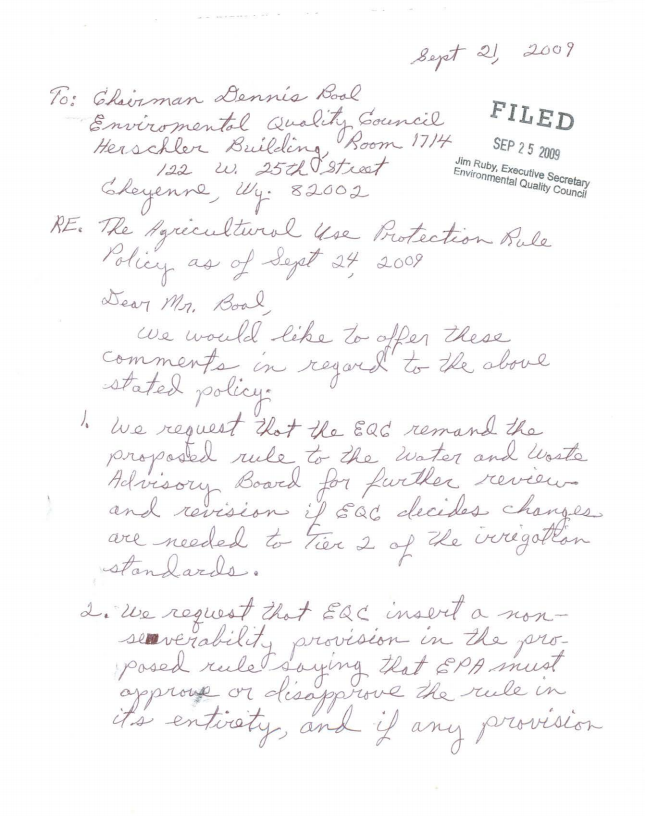 Sept 21, 2009
To: Chairman Dennis Boal
Enviromental Quality Council
Herschler Building, Room 1714
122 W. 25th Street
Cheyenne, Wy. 82002
FILED
SEP 25 2009
Jim Ruby, Executive Secretary
Environmental Quality Council
RE. The Agricultural Use Protection Rule
Policy as of Sept 24, 2009
Dear Mr. Boal,
We would like to offer these
comments in regard to the above
stated policy.
1. We request that the EQC remand the
proposed rule to the Water and Waste
Advisory Board for further review
and revision if EQC decides changes
are needed to Tier 2 of the irrigation
standards.
2. We request that EQC insert a non-
severability provision in the pro-
posed rule saying that EPA must
approve or disapprove the rule in
its entirety, and if any provision